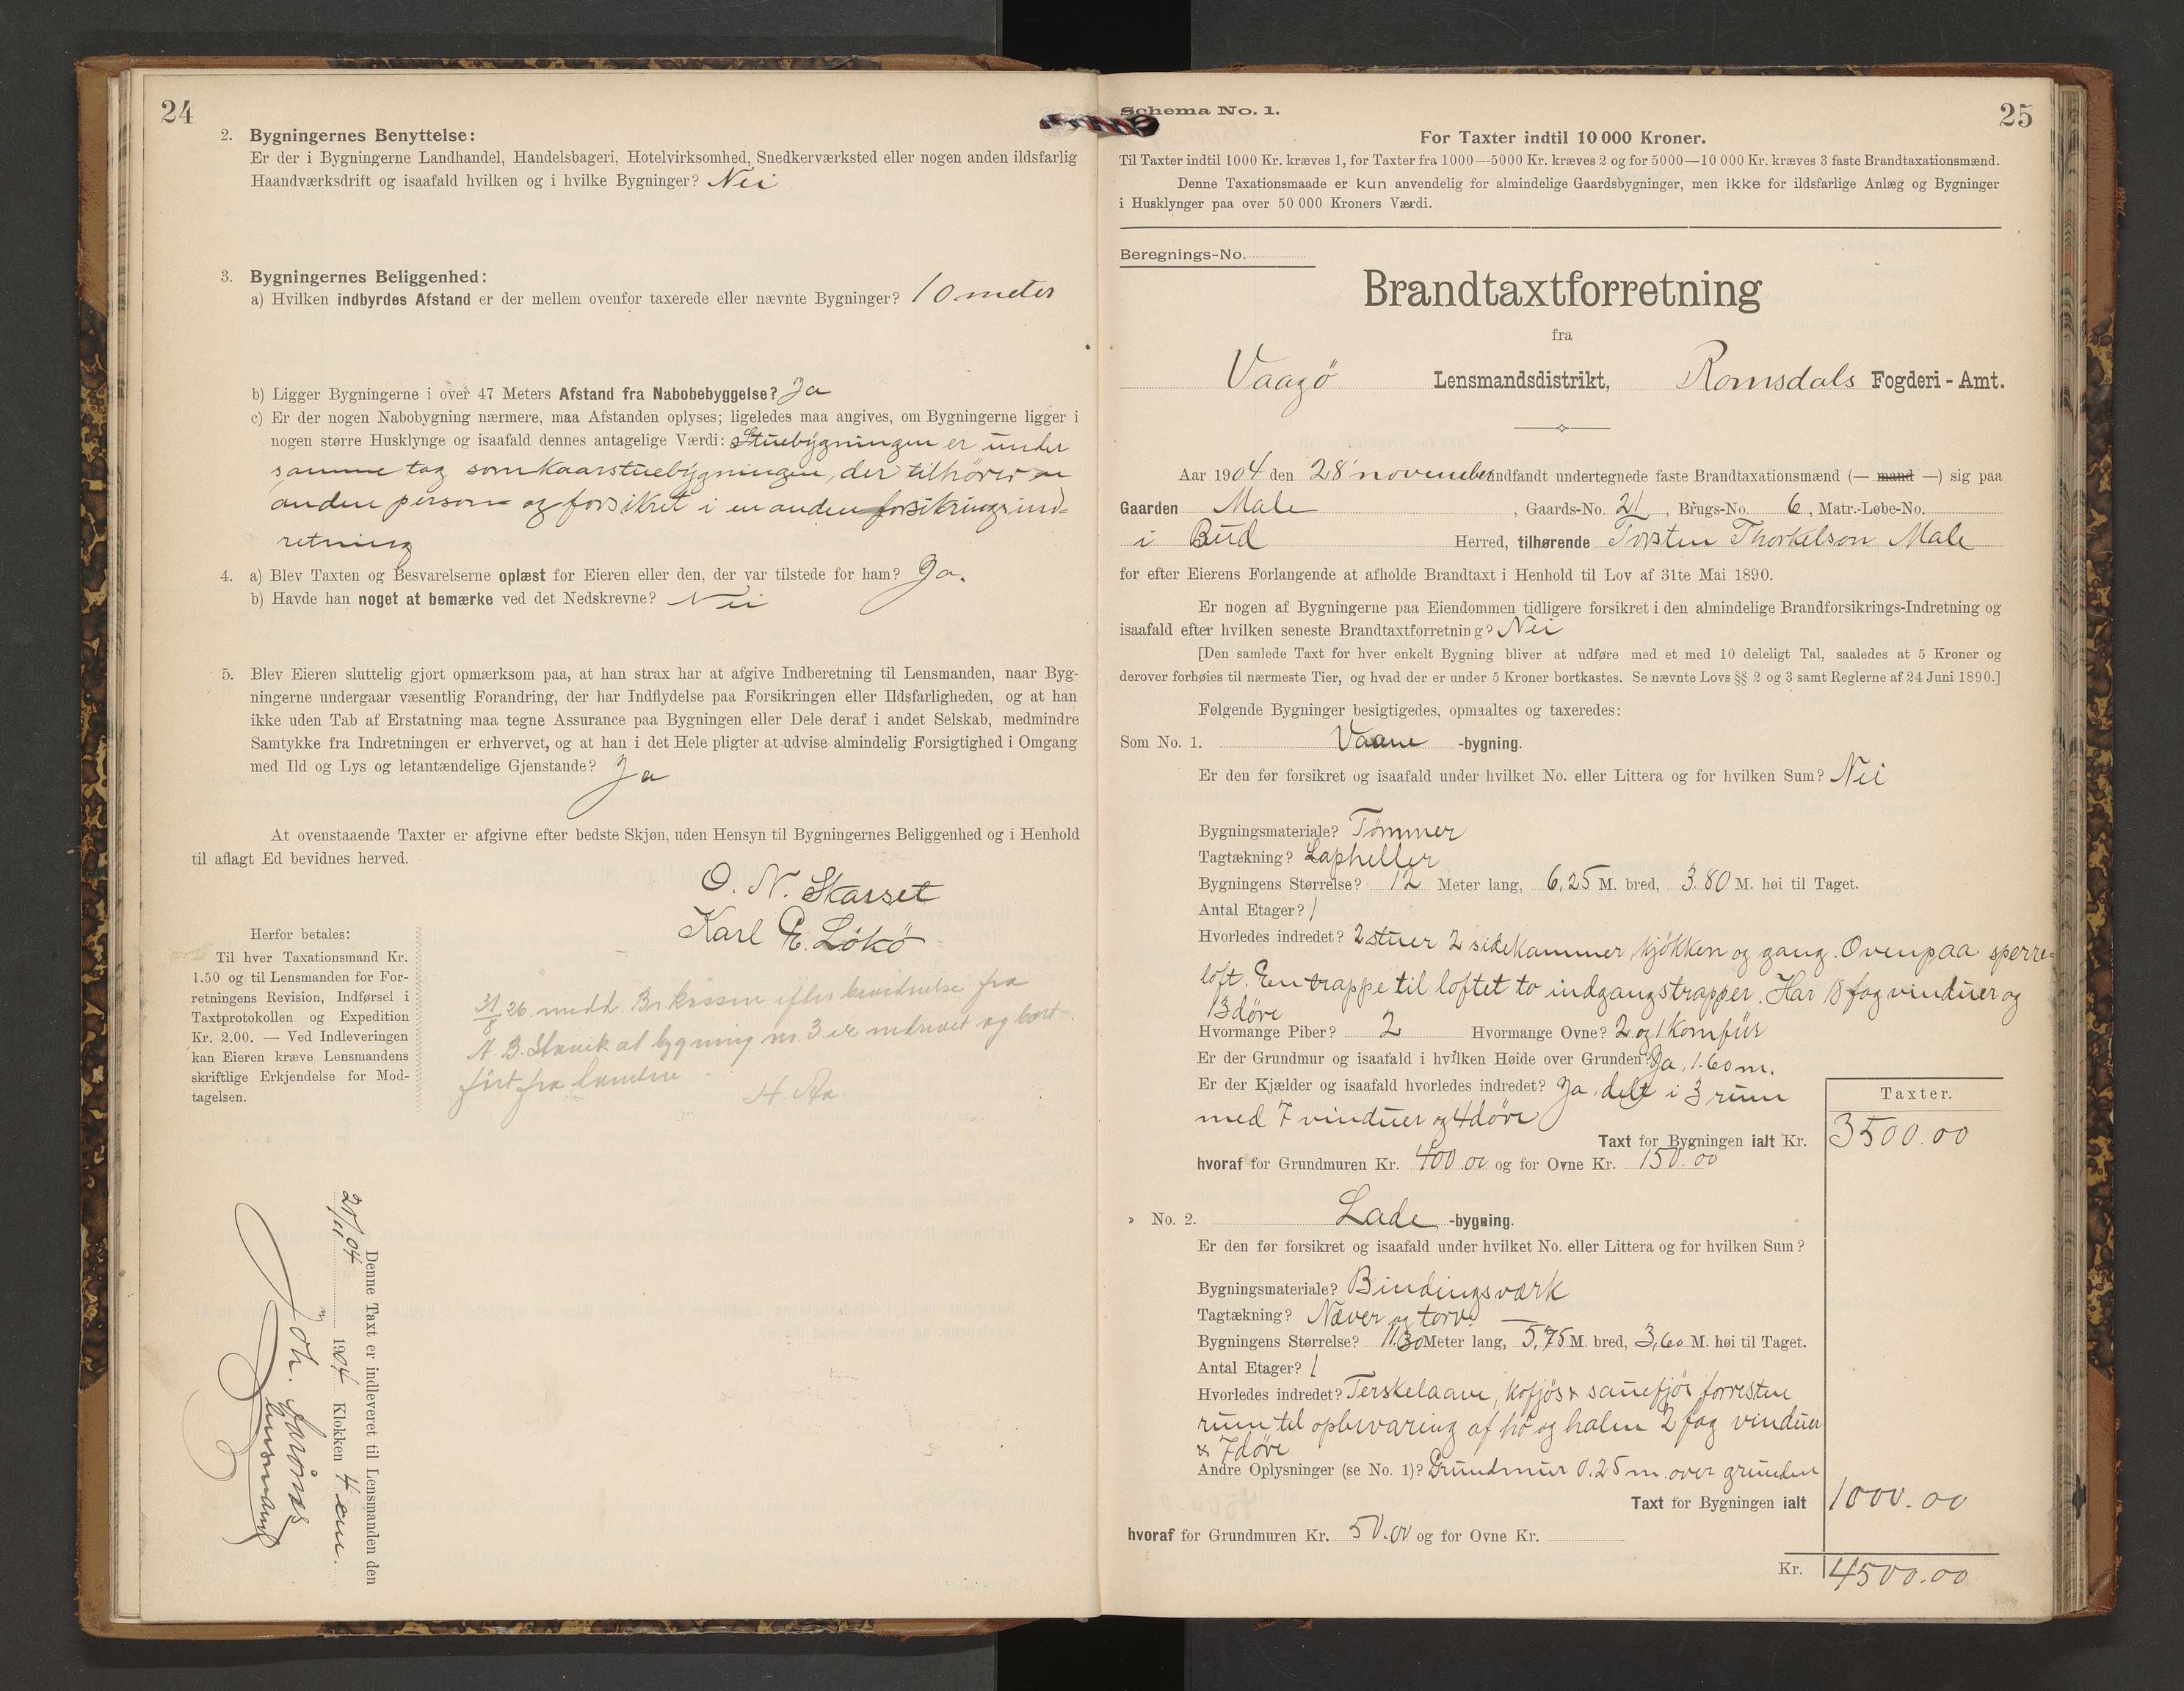 24
2. Bygningernes Benyttelse:
Er der i Bygningerne Landhandel, Handelsbageri, Hotelvirksomhed, Snedkerværksted eller nogen anden ildsfarlig
Haandværksdrift og isaafald hvilken og i hvilke Bygninger? Nei
3. Bygningernes Beliggenhed:
a) Hvilken indbyrdes Afstand er der mellem ovenfor taxerede eller nævnte Bygninger? 10 meter
b) Ligger Bygningerne i over 47 Meters Afstand fra Nabobebyggelse? Ja
c) Er der nogen Nabobygning nærmere, maa Afstanden oplyses; ligeledes maa angives, om Bygningerne ligger i
nogen større Husklynge og isaafald dennes antagelige Værdi: Stuebygningen er under
samme tag som kaarstuebygningen, der tilhører en
anden person og forsikret i en anden forsikringsind=
retning
4. a) Blev Taxten og Besvarelserne oplæst for Eieren eller den, der var tilstede for ham? Ja.
b) Havde han noget at bemærke ved det Nedskrevne? Nei
5. Blev Eieren sluttelig gjort opmærksom paa, at han strax har at afgive Indberetning til Lensmanden, naar Byg-
ningerne undergaar væsentlig Forandring, der har Indflydelse paa Forsikringen eller Ildsfarligheden, og at han
ikke uden Tab af Erstatning maa tegne Assurance paa Bygningen eller Dele deraf i andet Selskab, medmindre
Samtykke fra Indretningen er erhvervet, og at han i det Hele pligter at udvise almindelig Forsigtighed i Omgang
med Ild og Lys og letantændelige Gjenstande? Ja
At ovenstaaende Taxter er afgivne efter bedste Skjøn, uden Hensyn til Bygningernes Beliggenhed og i Henhold
til aflagt Ed bevidnes herved.
O. N. Skarset
Karl E. Løkø
Herfor betales:
Til hver Taxationsmand Kr.
1.50 og til Lensmanden for For-
retningens Revision, Indførsel i
Taxtprotokollen og Expedition
Kr. 2.00. — Ved Indleveringen
kan Eieren kræve Lensmandens
skriftlige Erkjendelse for Mod-
tagelsen.
31/8 26 medd Br.kassen efter bevidnelse fra
A. B. Stavik at bygning nr. 3 er nedrevet og bort-
ført fra
H. Aa.
Denne Taxt er indleveret til Lensmanden den
1904 Klokken 4 em.
Joh.
Lensmand
Schema No. 1.
25
For Taxter indtil 10 000 Kroner.
Til Taxter indtil 1000 Kr. kræves 1, for Taxter fra 1000—5000 Kr. kræves 2 og for 5000—10 000 Kr. kræves 3 faste Brandtaxationsmænd.
Denne Taxationsmaade er kun anvendelig for almindelige Gaardsbygninger, men ikke for ildsfarlige Anlæg og Bygninger
i Husklynger paa over 50 000 Kroners Værdi.
Beregnings-No.
Brandtaxtforretning
fra
Vaagø Lensmandsdistrikt, Romsdals Fogderi - Amt.
Aar 1904 den 28 november indfandt undertegnede faste Brandtaxationsmænd (— mand —) sig paa
Gaarden Male, Gaards-No. 21, Brugs-No. 6, Matr.-Løbe-No.
i Bud Herred, tilhørende Torsten Thorkelson Male
for efter Eierens Forlangende at afholde Brandtaxt i Henhold til Lov af 31te Mai 1890.
Er nogen af Bygningerne paa Eiendommen tidligere forsikret i den almindelige Brandforsikrings-Indretning og
isaafald efter hvilken seneste Brandtaxtforretning? Nei
[Den samlede Taxt for hver enkelt Bygning bliver at udføre med et med 10 deleligt Tal, saaledes at 5 Kroner og
derover forhøies til nærmeste Tier, og hvad der er under 5 Kroner bortkastes. Se nævnte Lovs §§ 2 og 3 samt Reglerne af 24 Juni 1890.]
Følgende Bygninger besigtigedes, opmaaltes og taxeredes:
Som No. 1. Vaane -bygning.
Er den før forsikret og isaafald under hvilket No. eller Littera og for hvilken Sum? Nei
Bygningsmateriale? Tømmer
Tagtækning? Lapheller
Bygningens Størrelse? 12 Meter lang, 6,25 M. bred, 3.80 M. høi til Taget.
Antal Etager? 1
Hvorledes indredet? 2 stuer 2 sidekammer, kjøkken og gang. Ovenpaa sperre=
loft. En trappe til loftet to indgangstrapper. Har 18 fag vinduer og
13 døre
Hvormange Piber? 2 Hvormange Ovne? 2 og 1 komfür
Er der Grundmur og isaafald i hvilken Høide over Grunden? Ja, 1.60 m.
Er der Kjælder og isaafald hvorledes indredet? Ja, delt i 3 rum
med 7 vinduer og 4 døre
Taxter.
Taxt for Bygningen ialt Kr. 3500.00
hvoraf for Grundmuren Kr. 400.00 og for Ovne Kr. 150.00
» No. 2. Lade -bygning.
Er den før forsikret og isaafald under hvilket No. eller Littera og for hvilken Sum?
Bygningsmateriale? Bindingsværk
Tagtækning? Næver og torv
Bygningens Størrelse? 11.30 Meter lang, 5,75 M. bred, 3,60 M. høi til Taget.
Antal Etager? 1
Hvorledes indredet? Terskelaave, kofjøs & sauefjøs forresten
rum til opbevaring af hø og halm 2 fag vinduer
& 7 døre
Andre Oplysninger (se No. 1)? Grundmur 0.25 m. over grunden
Taxt for Bygningen ialt 1000.00
hvoraf for Grundmuren Kr. 50.00 og for Ovne Kr.
Kr. 4500.00